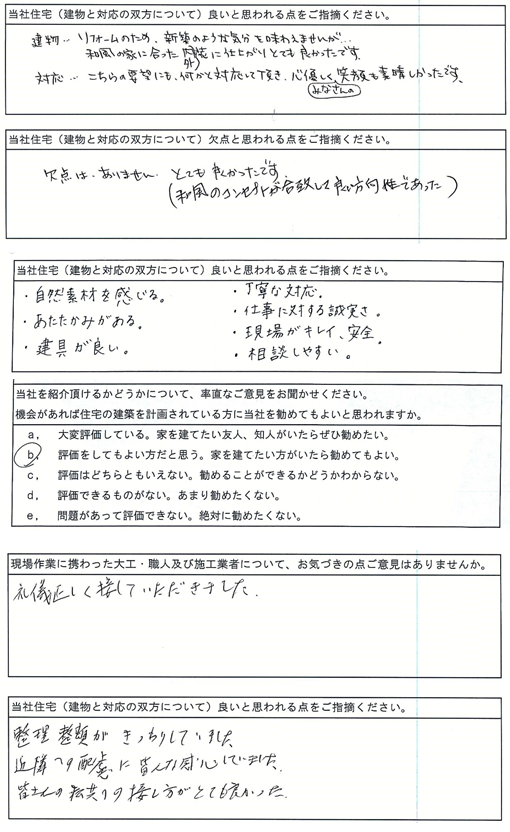 当社住宅（建物と対応の双方について）良いと思われる点をご指摘ください。
建物… リフォームのため、新築のような気分を味わえませんが…
和風の家に合った内装に仕上がりとても良かったです。
外
対応… こちらの要望にも、何かと対応して頂き、心優しく、笑顔も素晴しかったです。
みなさんの
当社住宅（建物と対応の双方について）欠点と思われる点をご指摘ください。
欠点は、ありません。とても良かったです。
（和風のコンセプトが合致して良い方向性であった）
当社住宅（建物と対応の双方について）良いと思われる点をご指摘ください。
・自然素材を感じる。
・あたたかみがある。
・建具が良い。
・丁寧な対応。
・仕事に対する誠実さ。
・現場がキレイ、安全。
・相談しやすい。
当社を紹介頂けるかどうかについて、率直なご意見をお聞かせください。
機会があれば住宅の建築を計画されている方に当社を勧めてもよいと思われますか。
a， 大変評価している。家を建てたい友人、知人がいたらぜひ勧めたい。
b， 評価をしてもよい方だと思う。家を建てたい方がいたら勧めてもよい。
c， 評価はどちらともいえない。勧めることができるかどうかわからない。
d， 評価できるものがない。あまり勧めたくない。
e， 問題があって評価できない。絶対に勧めたくない。
現場作業に携わった大工・職人及び施工業者について、お気づきの点ご意見はありませんか。
礼儀正しく接していただきました。
当社住宅（建物と対応の双方について）良いと思われる点をご指摘ください。
整理整頓がきっちりしていました
近隣への配慮に皆んな感心していました。
皆さんの の接し方がとても良かった。